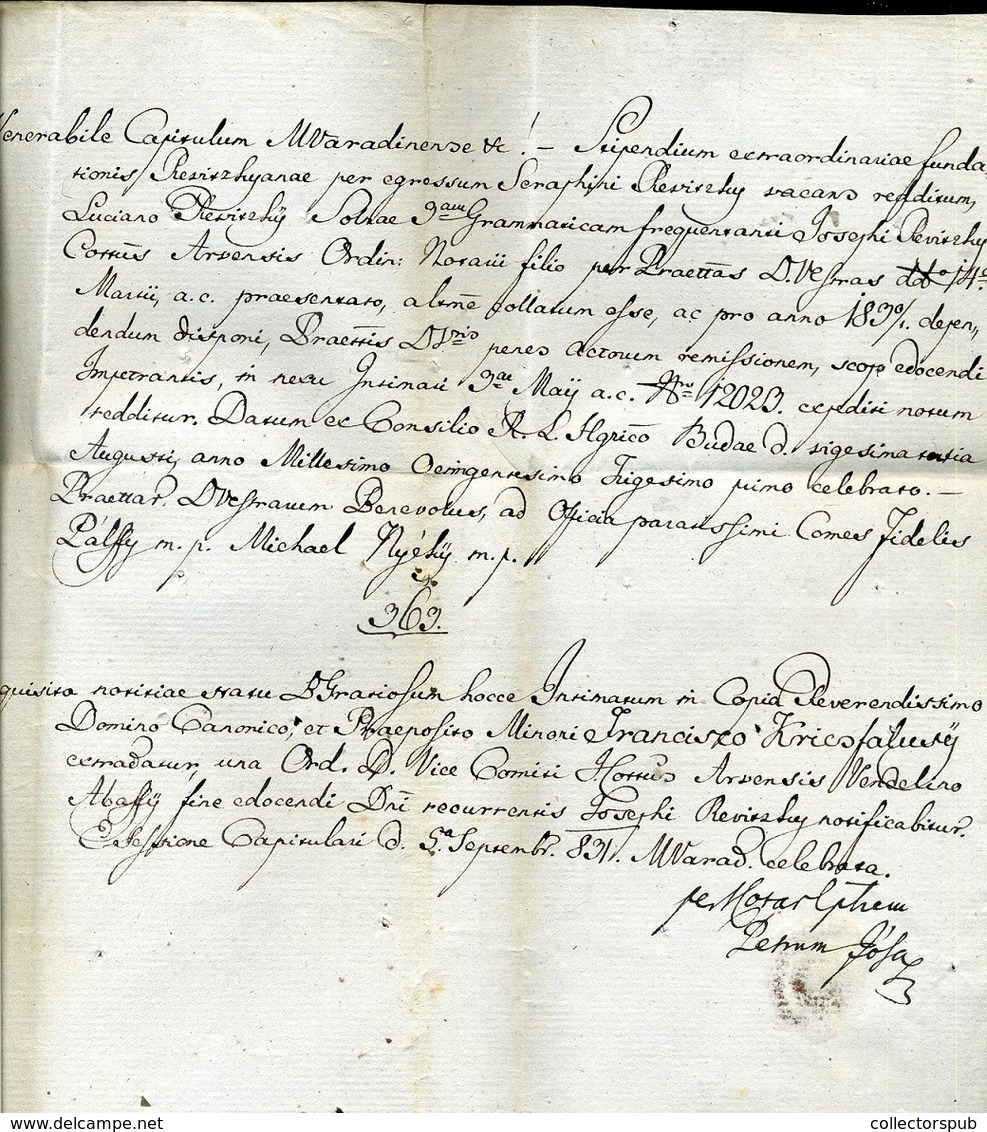 Venerabile Capitulum MVaradinense &c! – Stipendium extraordinariae funda,,
tionis Reviczkyanae per egressum Seraphini Reviczky vacans redditum,
Luciano Reviczky Solnae 3am Grammaticam frequentanti Josephi Reviczky
Cottus Arvensis Ordin: Notarii filio per Praettas DVestras ddo 14a
Martii, a.c. praesentato, altme collatum esse, ac pro anno 1830/1. depen,,
dendum disponi, Praettis DVris penes actorum remissionem, scopo edocendi
Impetrantis, in nexu Intimati 3ae Maji a.c. Nro 12023. expediti notum
redditur. Datum ex Consilio R. L. Hgrico Budae d. vigesima tertia
Augusti, anno Millesimo Octingentesimo Trigesimo primo celebrato. –
Praettar. DVestrarum Benevolus, ad Officia paratissimi Comes Fidelis
Pálffy m. p. Michael Nyéky m. p.
363.
quisito notitiae statu BGratiosum hocce Intimatum in Copia Reverendissimo
Domino Canonico, et Praeposito Minori Francisco Kricsfalussy
extradatur, una Ord. D. Vice Comiti Cottus Arvensis Vendelino
Abaffy fine edocendi Dni recurrentis Josephi Reviczky notificabitur.
E Sessione Capitulari d. 5a Septembr. 831. MVarad. celebrata.
per Notar Cplrem
Petrum Jósa
collectorspub